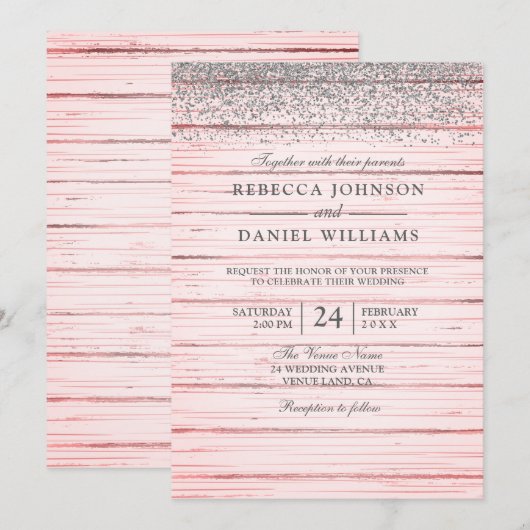 Together with their parents
REBECCA JOHNSON
and
DANIEL WILLIAMS
REQUEST THE HONOR OF YOUR PRESENCE
TO CELEBRATE THEIR WEDDING
SATURDAY
2:00 PM
24
FEBRUARY
20XX
The Venue Name
24 WEDDING AVENUE
VENUE LAND, CA
Reception to follow